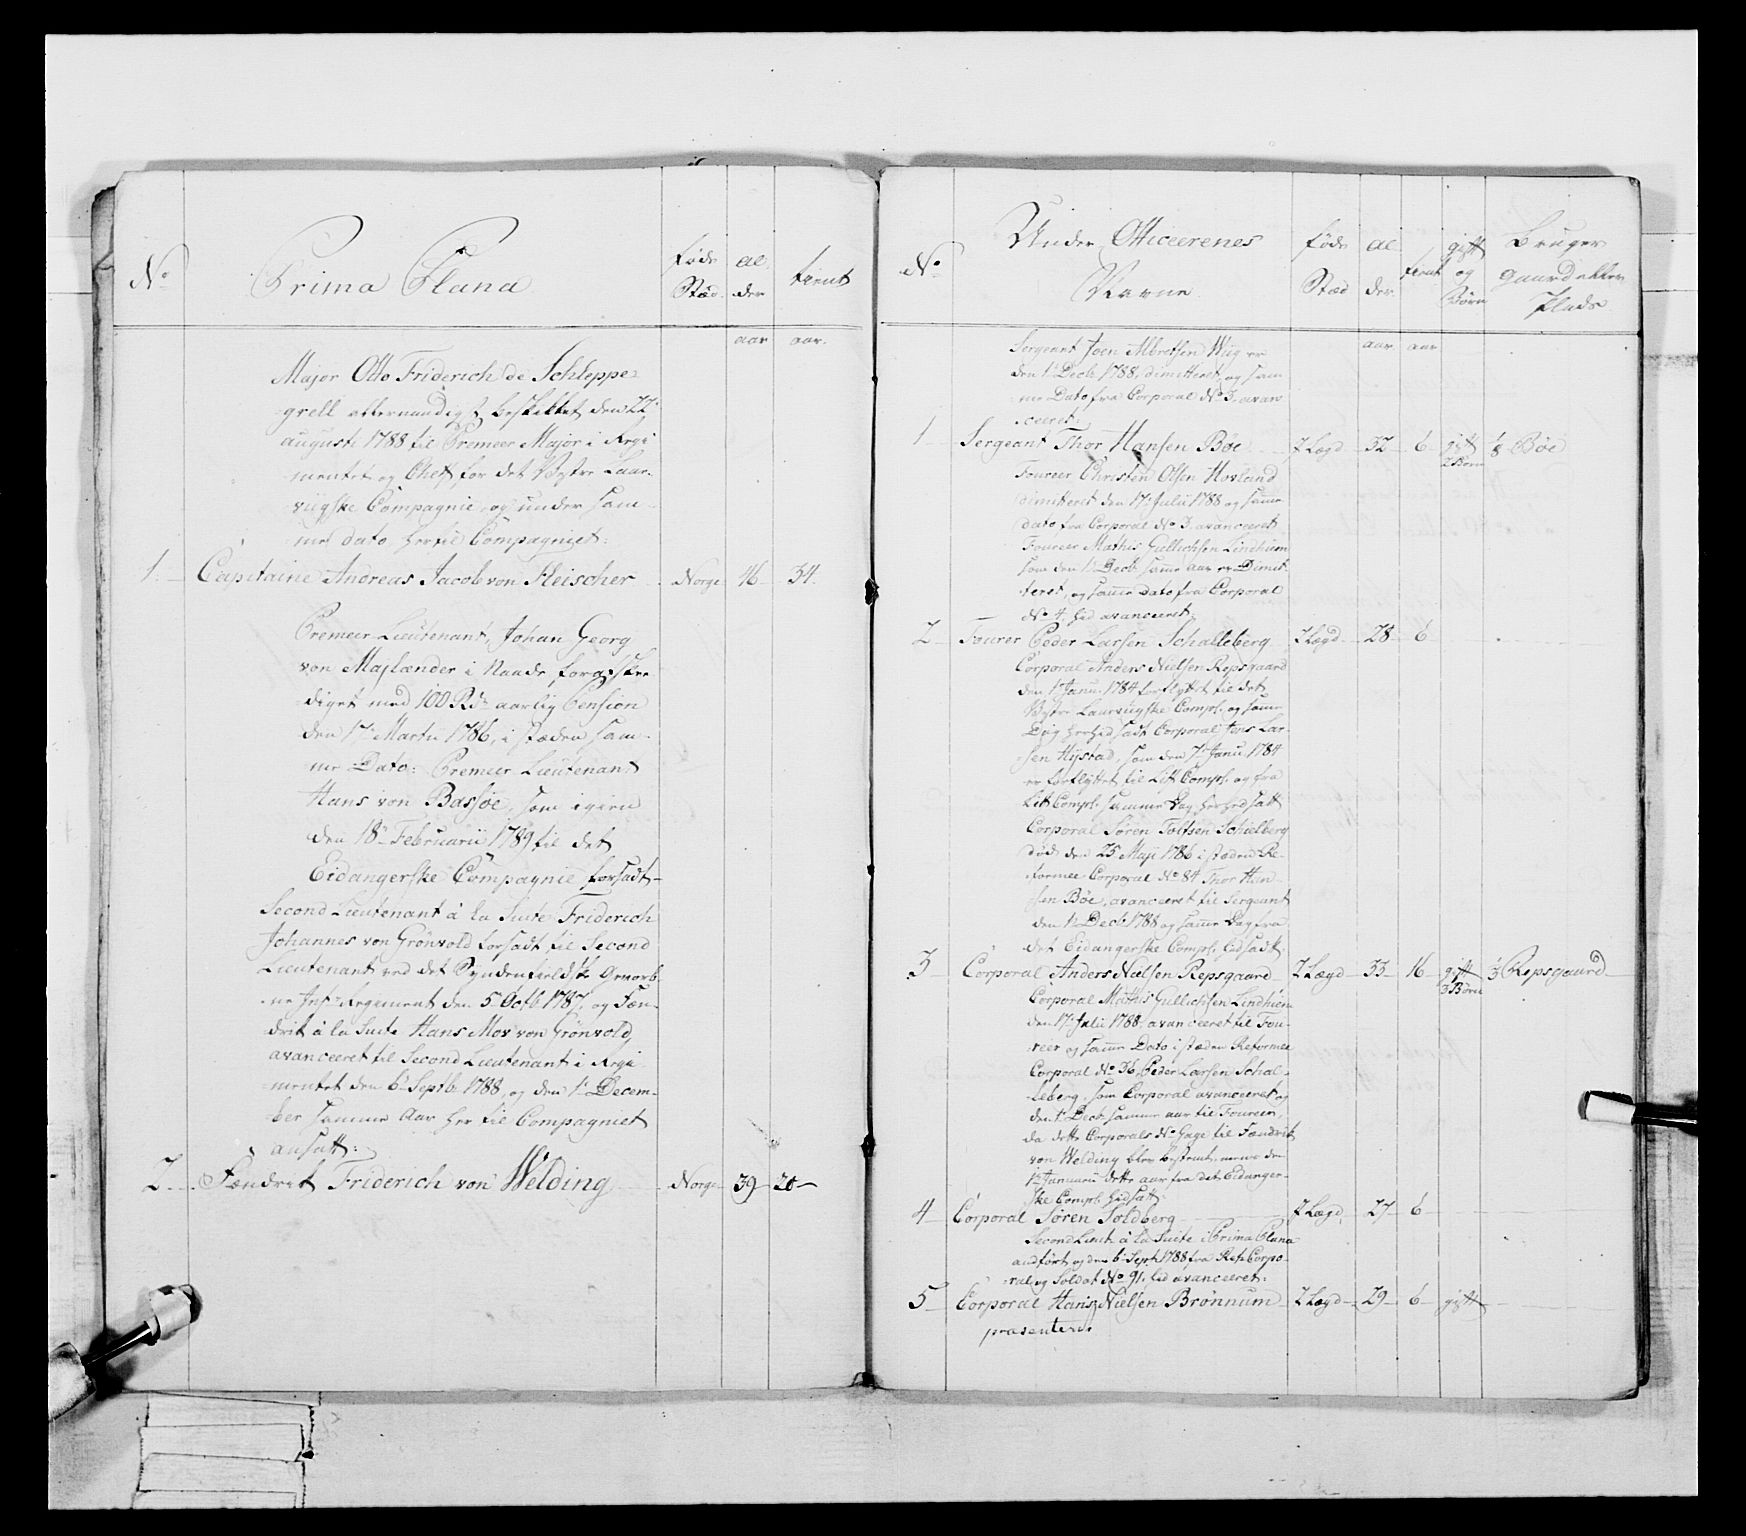 No
Prima Plana
føde Stæd
al der
tient
aar
aar.
Major Otto Friderich de Schleppe=
grell allernaadigst beskikket den 22.
augusti 1788 til Premeer Major i Regi
mentet og Chef for det Vestre Laur=
viigske Compagnie, og under sam=
me dato her til Compagniet:
1. Capitaine Andreas Jacob von Fleischer Norge 46 34.
Premeer Lieutenant, Johan Georg
von Majlænder i Naade forafske=
diget med 100 Rd. aarlig Pension
den 17. Martii 1786, i stæden sam=
me Dato: Premeer Lieutenant
Hans von Bassøe, som igien
den 18. Februarii 1789 til det
Eidangerske Compagnie forsadt
Second Lieutenant á la Suite Friderich
Johannes von Grönvold forsadt til Second
Lieutenant ved det Syndenfieldske Gevorb=
ne Inf: Regiment den 5. Octb. 1787, og Fæn=
drik á la Suite Hans Mov von Grönvold,
avanceeret til Second Lieutenant i Regi=
mentet den 6. Septb. 1788, og den 1. Decem=
ber samme Aar her til Compagniet
ansatt:
2. Fændrik Friderich von Welding Norge 39 20
No
Under Officeerenes
Navne
føde Stæd
al der
tient
gift og Børn
Bruger
gaard eller
Plads
aar
aar
Sergeant Joen Albretsen Wiig er
den 1. Decb. 1788, dimitteret, og sam=
me Dato fra Corporal No 3. avan=
ceeret:
1 Sergeant Thor Hansen Bøe 2 Lægd 32 6 gift 2 Børn 1/8 Bøe
Foureer Christen Olsen Hovland
dimitteret den 17. Julii 1788 og samme
dato fra Corporal No 3. avanceeret
Foureer Mathis Gullichsen Lindhiem
som den 1. Decb. samme aar er Dimit=
teret, og samme dato fra Corporal
No 4. hid avanceeret:
2 Fourer Peder Larsen Schalleberg 2 Lægd 28 6
Corporal Anders Nielsen Repsgaard
den 1. Janu. 1784 forflyttet til det
Vestre Laurviigske Comp: og samme
Dag herhid sadt Corporal Jens Lar=
sen Hystad, som den 7. Janu. 1784
er forflyttet til Litt. Comp: og fra
Litt Comp: samme Dag herhed satt
Corporal Søren Tolfsen Schielberg
død den 25. Maji 1786 i stæden Re=
formee Corporal No 84 Thor Han=
sen Bøe, avanceeret til Sergeant
den 1. Decb. 1788 og samme Dag fra
det Eidangerske Comp: hidsadt:
3 Corporal Anders Nielsen Repsgaard 2 Lægd 33 16 gift 3 Børn 1/3 Repsgaard
Corporal Mathis Gullichsen Lindhiem
den 17. Julii 1788, avanceeret til Fou=
reer og samme Dato i stæden Reformee
Corporal No 36, Peder Larsen Schal=
leberg, som Corporal avanceeret og
den 1. Decb. samme aar til Foureer,
da dette Corporals No Gage til Fændrik
von Welding blev bestemt, mens den
1. Januarii dette aar fra det Eidanger=
ske Comp: hidsatt:
4 Corporal Søren Soldberg 2 Lægd 27 6
Second Lieut. á la Suite i Prima Plana
andført og den 6. Sept. 1788 fra Ref: Corpo=
ral og Soldat No 91. hid avanceeret:
5 Corporal Hans Nielsen Brønnum 2 Lægd 29 6 gift
præsentere